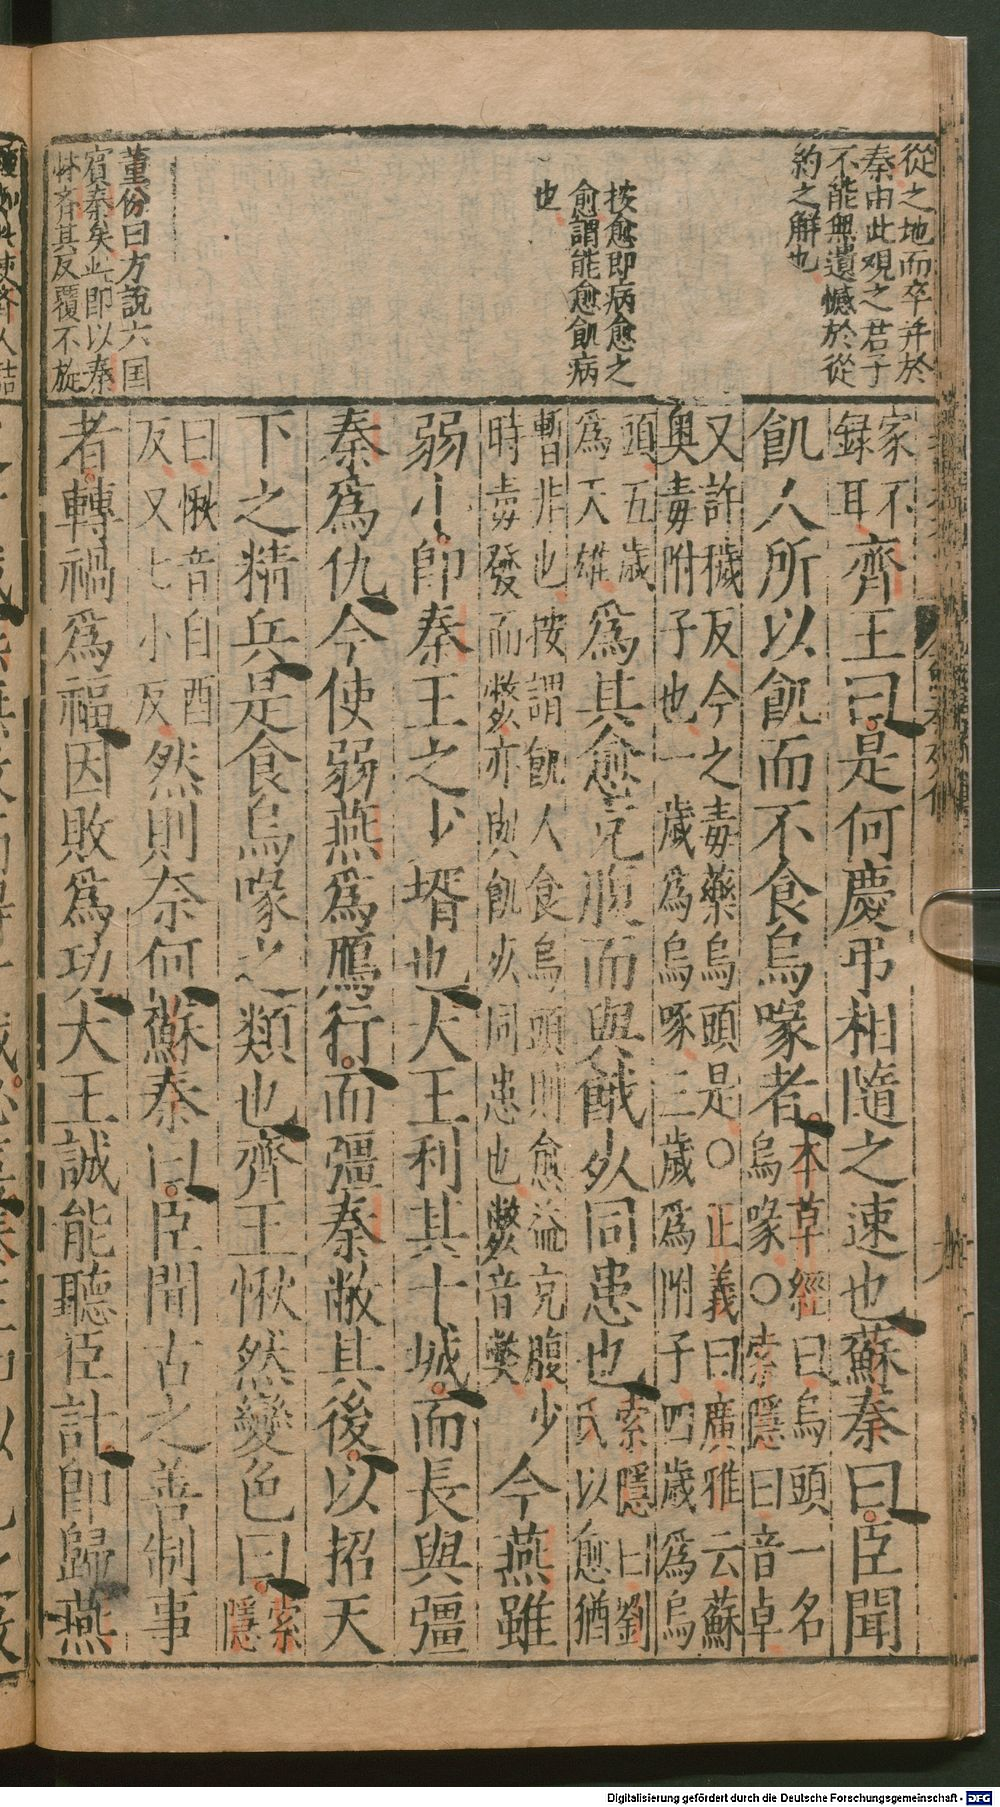 從之地而卒并於
秦由此观之君子
不能無遺憾於從
約之解也
按愈即病愈之
愈謂能愈飢病
也
董份曰方說六国
賓秦矣此即以秦
怵齊其反覆不旋
家不
録耳
齊王曰是何慶弔相隨之速也蘇秦曰臣聞
飢人所以飢而不食烏喙者
本草經曰烏頭一名
烏喙○索隱曰音卓
又許穢反今之毒藥烏頭是○正義曰廣雅云蘇
奥毒附子也一歲為烏啄三歲為附子四歲為烏
頭五歲
為天雄
為其愈充腹而與餓死同患也
索隱曰劉
氏以愈猶
暫非也按謂飢人食烏頭則愈益充腹少
時毒發而斃亦與飢死同患也斃音獘
今燕雖
弱小即秦王之少壻也大王利其十城而長與彊
秦為仇今使弱燕為鴈行而彊秦敝其後以招天
下之精兵是食烏喙之類也齊王愀然變色曰
索
隱
曰愀音白酉
反又七小反
然則奈何蘇秦曰臣聞古之善制事
者轉禍為福因敗為功大王誠能聽臣計即歸燕
Digitalisierung gefördert durch die Deutsche Forschungsgemeinschaft - DFG